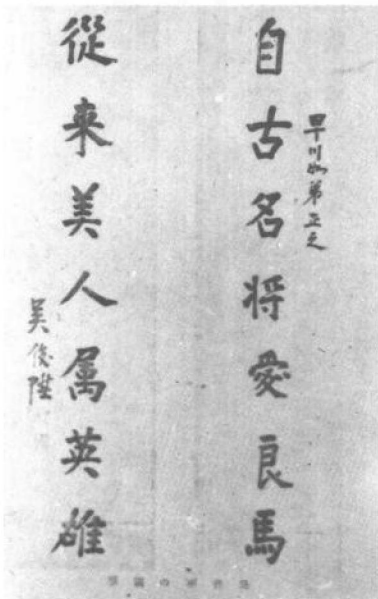 自古名将愛良馬
早川如弟正之
從来美人属英雄
吴俊陞